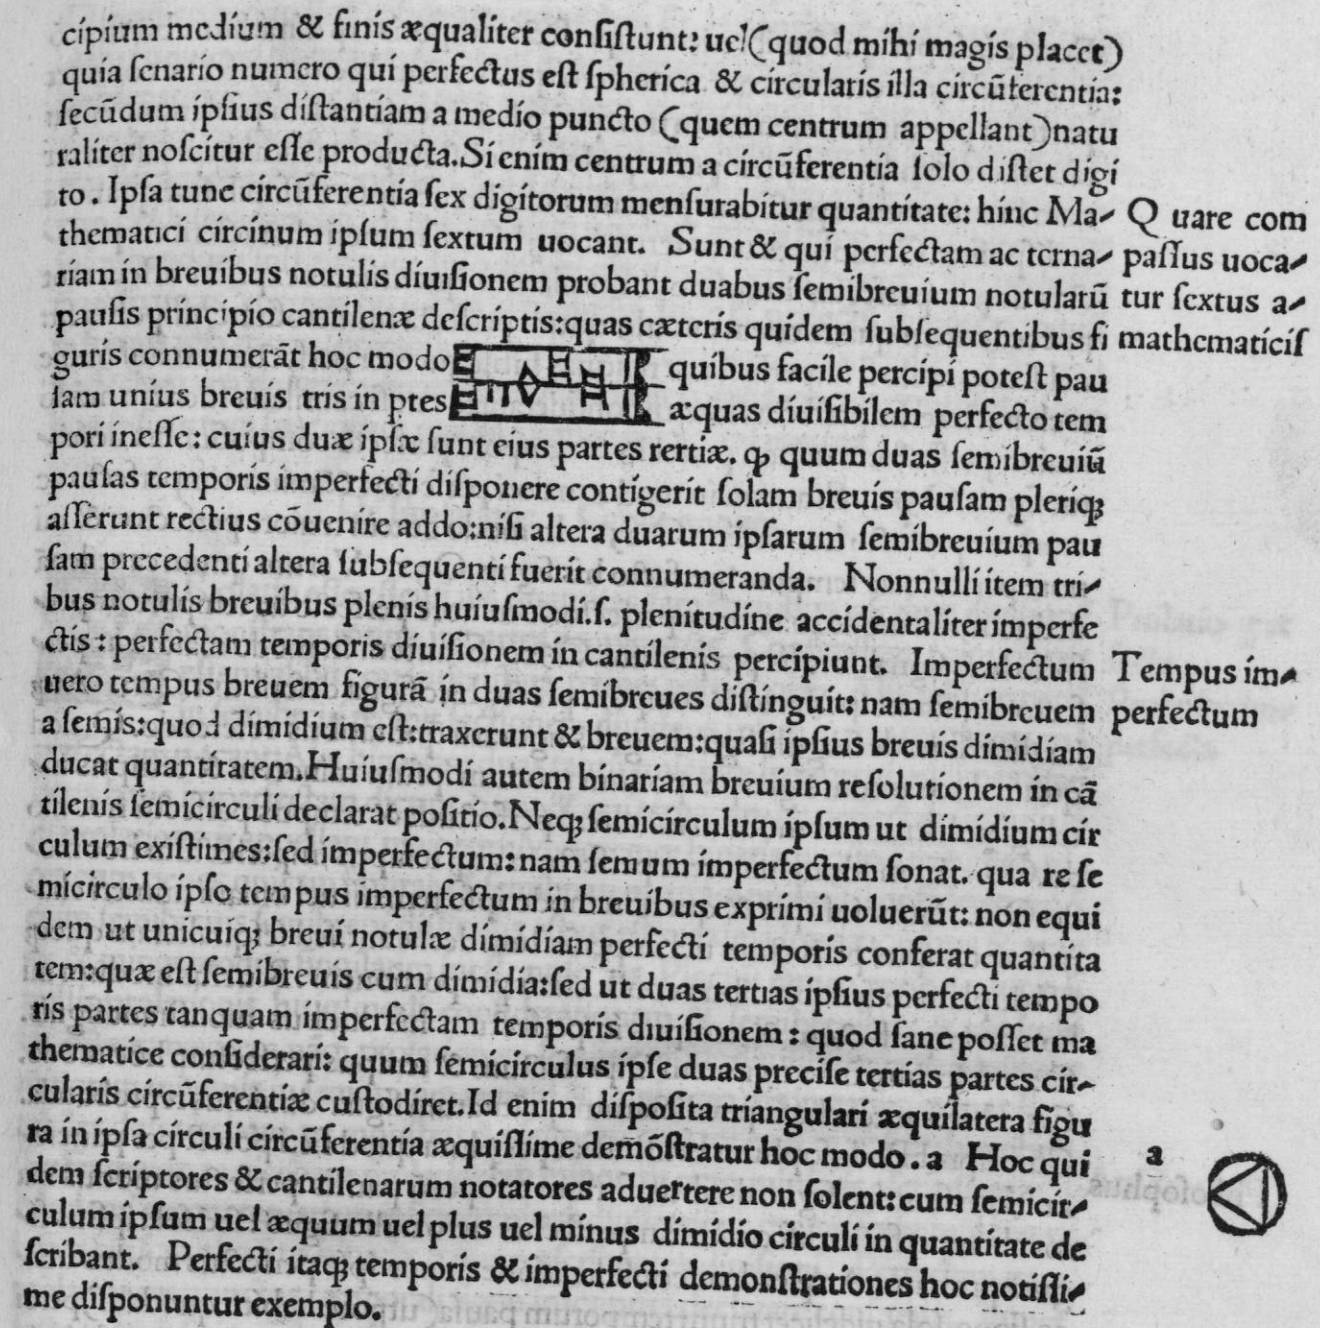 cipium medium & finis æqualiter conſiſtunt: uel (quod mihi magis placet)
quia ſenario numero qui perfectus eſt ſpherica & circularis illa circūferentia:
ſecūdum ipſius diſtantiam a medio puncto (quem centrum appellant) natu
raliter noſcitur eſſe producta. Si enim centrum a circūferentia ſolo diſtet digi
to. Ipſa tunc circūferentia ſex digitorum menſurabitur quantitate: hinc Ma-
thematici circinum ipſum ſextum uocant. Sunt & qui perfectam ac terna-
riam in breuibus notulis diuiſionem probant duabus ſemibreuium notularū
pauſis principio cantilenæ deſcriptis: quas cæteris quidem ſubſequentibus fi
guris connumerāt hoc modo quibus facile percipi poteſt pau
ſam unius breuis tris in ptes æquas diuiſibilem perfecto tem
pori ineſſe: cuius duæ ipſæ ſunt eius partes rertiæ. ꝙ quum duas ſemibreuiū
pauſas temporis imperfecti diſponere contigerit ſolam breuis pauſam pleriqꝫ
aſſerunt rectius cōuenire addo: niſi altera duarum ipſarum ſemibreuium pau
ſam precedenti altera ſubſequenti fuerit connumeranda. Nonnulli item tri-
bus notulis breuibus plenis huiuſmodi. ſ. plenitudine accidentaliter imperfe
ctis: perfectam temporis diuiſionem in cantilenis percipiunt. Imperfectum
uero tempus breuem figurā in duas ſemibreues diſtinguit: nam ſemibreuem
a ſemis: quod dimidium eſt: traxerunt & breuem: quaſi ipſius breuis dimidiam
ducat quantitatem. Huiuſmodi autem binariam breuium reſolutionem in cā
tilenis ſemicirculi declarat poſitio. Neqꝫ ſemicirculum ipſum ut dimidium cir
culum exiſtimes: ſed imperfectum: nam ſemum imperfectum ſonat. qua re ſe
micirculo ipſo tempus imperfectum in breuibus exprimi uoluerūt: non equi
dem ut unicuiqꝫ breui notulæ dimidiam perfecti temporis conferat quantita
tem: quæ eſt ſemibreuis cum dimidia: ſed ut duas tertias ipſius perfecti tempo
ris partes tanquam imperfectam temporis diuiſionem: quod ſane poſſet ma
thematice conſiderari: quum ſemicirculus ipſe duas preciſe tertias partes cir-
cularis circūferentiæ cuſtodiret. Id enim diſpoſita triangulari æquilatera figu
ra in ipſa circuli circūferentia æquiſſime demōſtratur hoc modo. a Hoc qui
dem ſcriptores & cantilenarum notatores aduertere non ſolent: cum ſemicir-
culum ipſum uel æquum uel plus uel minus dimidio circuli in quantitate de
ſcribant. Perfecti itaqꝫ temporis & imperfecti demonſtrationes hoc notiſſi-
me diſponuntur exemplo.
Q uare com
paſſus uoca-
tur ſextus a-
mathematiciſ
Tempus im-
perfectum
a